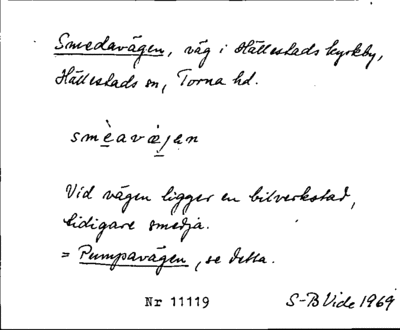 Smedavägen, väg i Hällestads kyrkby,
Hällestads sn, Torna hd.
smèavä̀jan
Vid vägen ligger en bilverkstad,
tidigare smedja.
= Pumpavägen, se detta.
Nr 11119 S-B Vide 1969